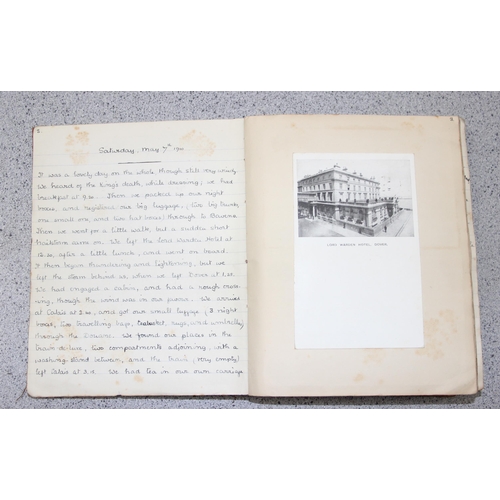 Saturday May 7th
It was a lovely day on the whole, though still very windy
We heard of the King's death, while dressing; we had
breakfast at 9. Then we packed up our night
boxes, and registered our big luggage, (five big trunks,
one small one, and two hat boxes) through to
Then we went for a little walk, but a sudden short
hailstorm came on. We left the Lord Warden Hotel at
after a little lunch, and went on board.
It then began thundering and lightening, but we
left the storm behind us when we left Dover at
We had engaged a cabin, and had a rough cross-
ing, though the wind was in our favour. We arrived
at Calais at and got our small luggage (3 night
boxes, two travelling bags, rugs, and umbrellas)
through the Douane. We found our places in the
train de luxe, two compartments adjoining, with a
washing stand between, and the train (very empty)
left Calais at We had tea in our own carriage
LORD WARDEN HOTEL, DOVER.